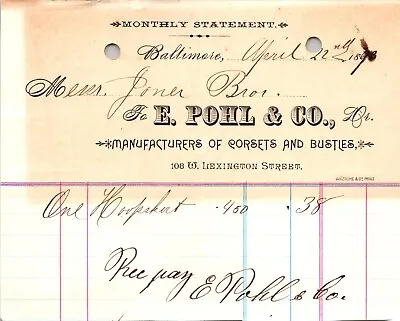 MONTHLY STATEMENT.
Baltimore, April 22nd 1893
Messr. Jones Bros.
To E. POHL & CO., Dr.
MANUFACTURERS OF CORSETS AND BUSTLES,
108 W. LEXINGTON STREET.
One Hoopskirt 450 38
Rec pay
E Pohl & Co.